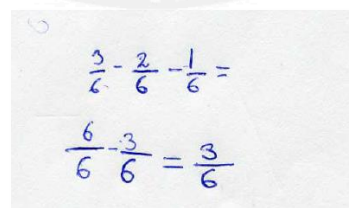 3/6 - 2/6 - 1/6 =
6/6 - 3/6 = 3/6